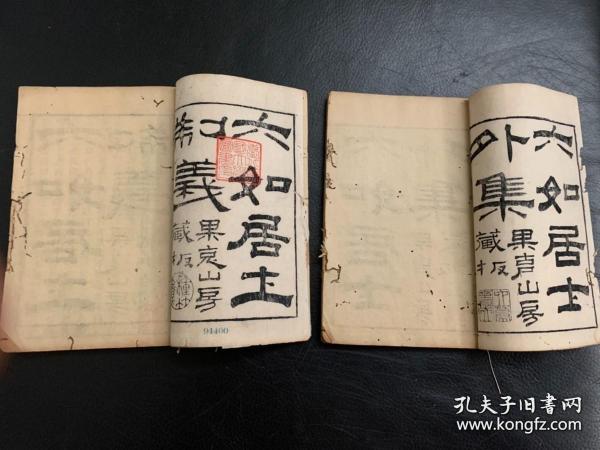 六如居士
制義
果克山房
藏板
94400
六如居士
外集
果克山房
藏板
孔夫子旧书网
www.kongfz.com